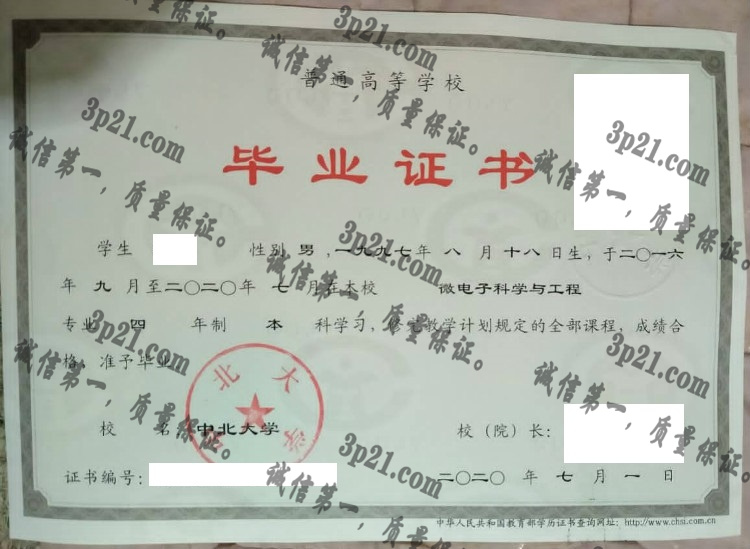 普通高等学校
毕业证书
学生 性别 男，一九九七年 八 月 十八 日生，于二〇一六
年 九 月至二〇二〇年 七 月在本校 微电子科学与工程
专业 四 年制 本 科学习，修完教学计划规定的全部课程，成绩合
格，准予毕业。
北大
校 名 中北大学 校（院）长：
证书编号：
二〇二〇 年 七 月 一 日
中华人民共和国教育部学历证书查询网址：http://www.chsi.com.cn
3p21.com
诚信第一，质量保证。
3p21.com
诚信第一，质量保证。
3p21.com
诚信第一，质量保证。
3p21.com
诚信第一，质量保证。
3p21.com
诚信第一，质量保证。
3p21.com
诚信第一，质量保证。
3p21.com
诚信第一，质量保证。
3p21.com
诚信第一，质量保证。